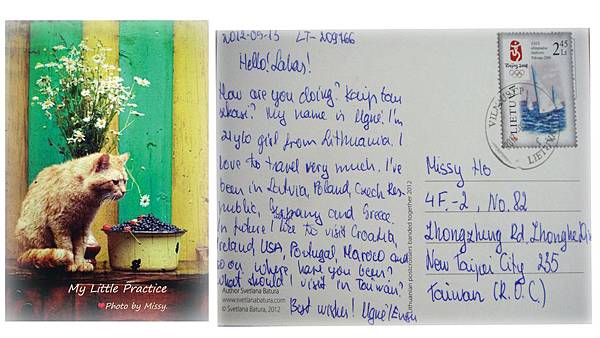 My Little Practice
❤Photo by Missy.
2012-05-15 LT-209766
Hello! Labas!
How are you doing? Kaip tau
sekasi? My name is Ugnė. I'm
21y/o girl from Lithuania. I
love to travel very much. I've
been in Latvia, Poland, Czech Res-
public, Germany and Greece.
In future I like to visit Croatia,
Ireland, USA, Portugal, Maroco and
so on. Where have you been?
What should I visit in Taiwan?
Best wishes! Ugnė/
Author Svetlana Batura
www.svetlanabatura.com
© Svetlana Batura, 2012
Lithuanian postcrossers banded together 2012
Beijing 2008
2 45
Lt
LIETUVA
VILNIAUS
LIETUVA
Missy Ho
4F.-2, No. 82
Zhongzheng Rd., Zhonghe
New Taipei City 235
Taiwan (R.O.C)